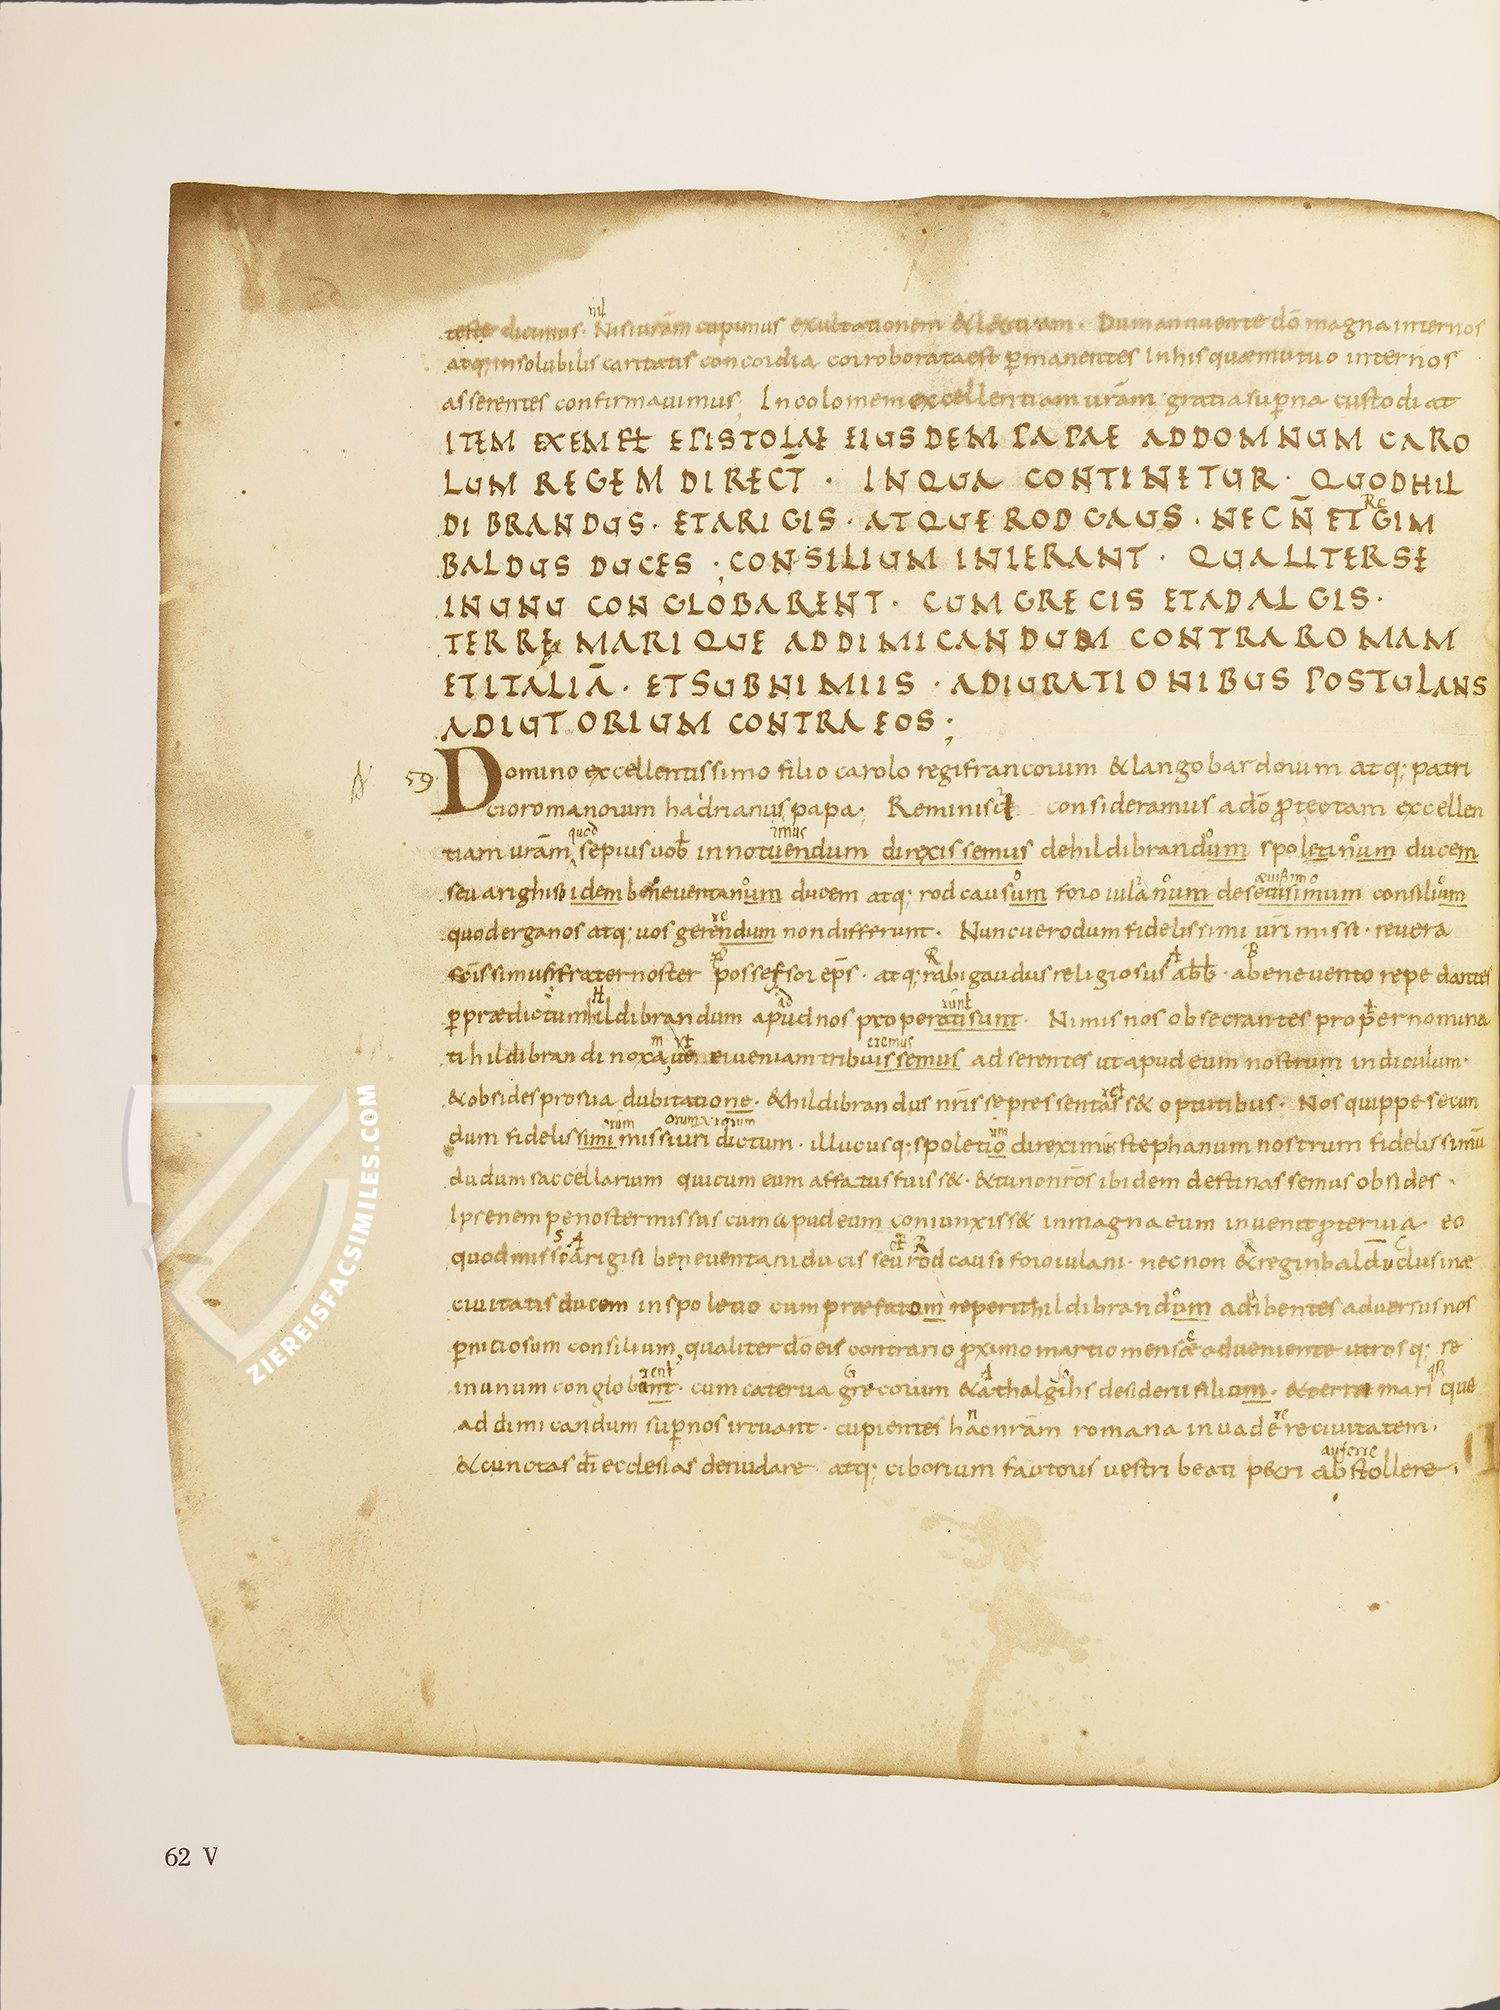 teste dicimus. Nisi urãm cupimus exultationem & lætitiam. Dum annuente dõ magna inter nos
nil
atq; insolubilis caritatis concordia corroborata est p̱manentes In his quæ mutuo inter nos
asserentes confirmavimus; Incolomem excellentiam urãm gratia sup̱na custodiat
ITEM EXEMPƚ EPISTOLAE EIUSDEM PAPAE AD DOMNUM CARO
LUM REGEM DIRECT̄ · IN QUA CONTINETUR · QUOD HIL
DIBRANDUS · ET ARIGIS · ATQUE RODGAUS · NECN̄ ET GIM
Re
BALDUS DUCES · CONSILIUM INIERANT · QUALITER SE
IN UNU CONGLOBARENT · CUM GRECIS ET ADALGIS ·
TERRE MARIQUE AD DIMICANDUM CONTRA ROMAM
ET ITALIĀ · ET SUB NIMIIS · ADIURATIONIBUS POSTULANS
ADIUTORIUM CONTRA EOS;
59 Domino excellentissimo filio carolo regi francorum & langobardorum atq; patri
cio romanorum hadrianus papa; Reminisci consideramus a dõ p̱tectam excellen
quod imus
tiam urãm sepius uob̄ innotuendum direxissemus de hildibrandum spoletinum ducem
seu arighis idem beneventanum ducem atq; rodcausum foro iulanum de sevissimum consilium
quod erga nos atq; uos gerendum non differunt. Nunc vero dum fidelissimi uri missi. revera
re
sc̄issimus frater noster possessor ep̄s. atq; rabigaudus religiosus abb̄. a benevento repedantes
p̱ prædictum hildibrandum apud nos properatisunt. Nimis nos obsecrantes pro p̱nomina
H ad runt
ti hildibrandi noxa, ut ei veniam tribuissemus adserentes ut apud eum nostrum indiculum.
eremus
& obsides pro sua dubitatione. & hildibrandus nr̄is se presentasset optutibus. Nos quippe secun
ret
dum fidelissimi missi uri dictum. illuc usq; spoletio direximus stephanum nostrum fidelissimū
orum orum urorum um
dudum saccellarium qui cum eum affatus fuiss&. & tunc nr̄os ibidem destinassemus obsides.
Ipse nempe noster missus cum apud eum coniunxiss& in magna eum invenit p̱tervia. eo
quod missi arigisi beneventani ducis seu rodcausi foroiulani. nec non & reginbald ducis clusinæ
civitatis ducem in spoletio cum præfatom reperit hildibrandum adhibentes adversus nos
p̱nitiosum consilium, qualiter dõ eis contrario p̱ximo martio mense adveniente utrosq; se
in unum conglobant. cum caterva grecorum & athalgihs desiderii filium. & terra marique
rent
ad dimicandum sup̱ nos irruant. cupientes hanc nr̄am romana invadere civitatem.
& cunctas dī ecclesias denudare. atq; ciborium fautoris vestri beati petri abstollere.
auferre
62 V
ZIEREISFACSIMILES.COM